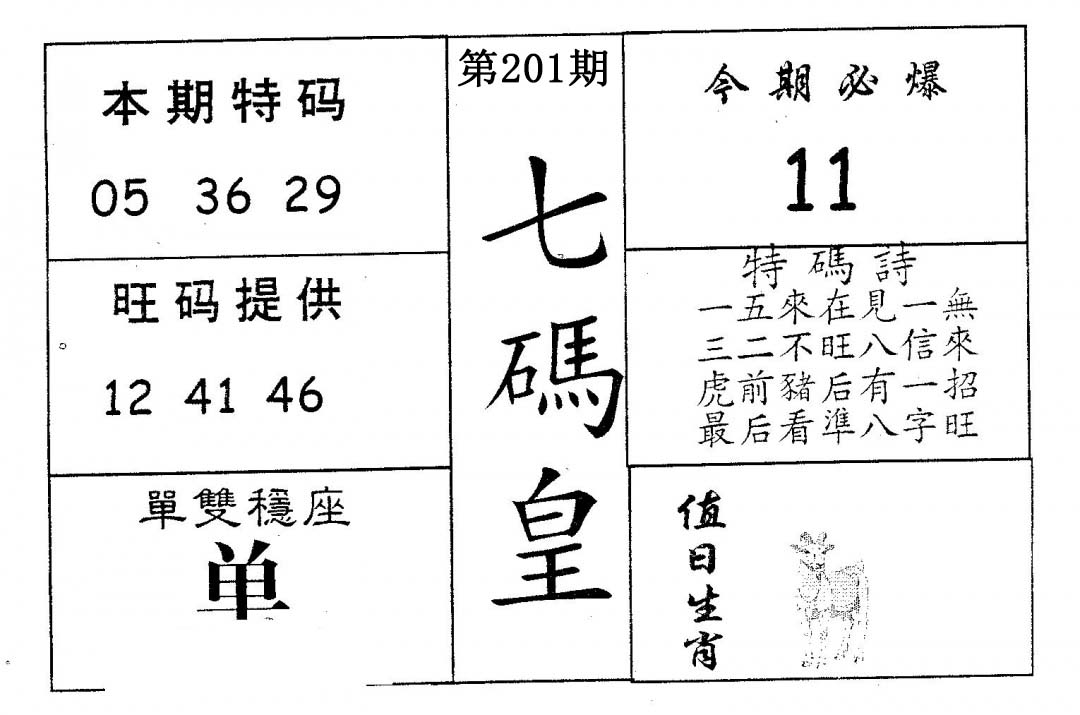 本期特码
05 36 29
旺码提供
12 41 46
單雙穩座
单
第201期
七碼皇
今期必爆
11
特碼詩
一五來在見一無
三二不旺八信來
虎前豬后有一招
最后看準八字旺
值日生肖